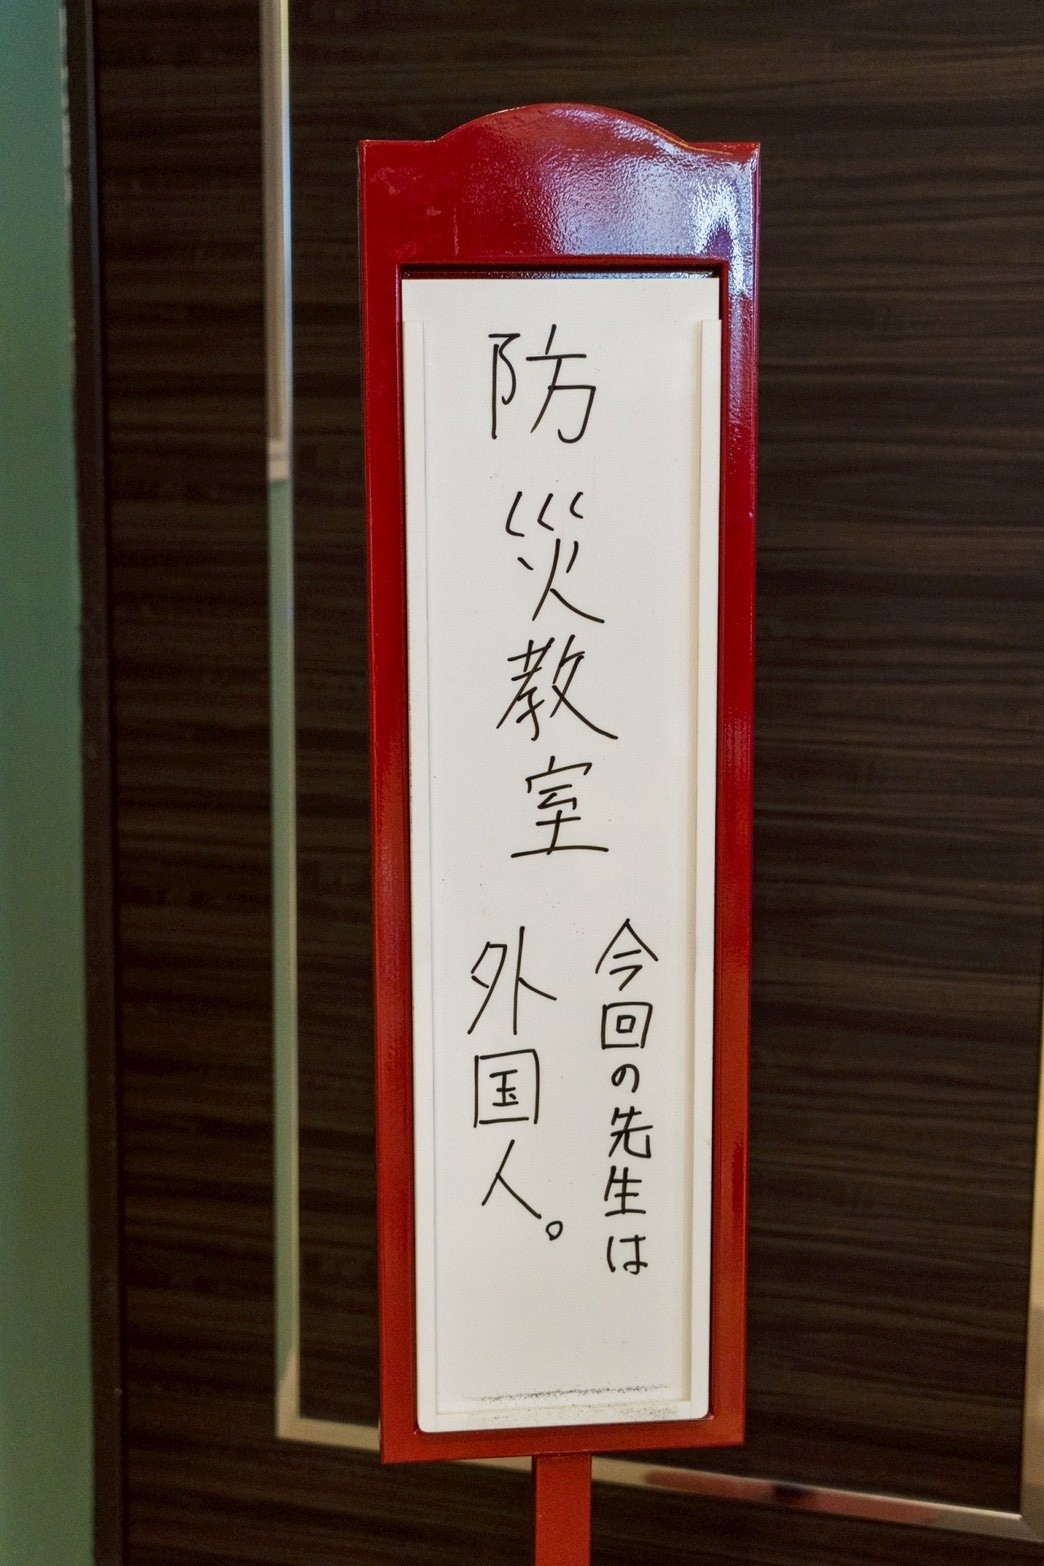 防災教室
今回の先生は
外国人。